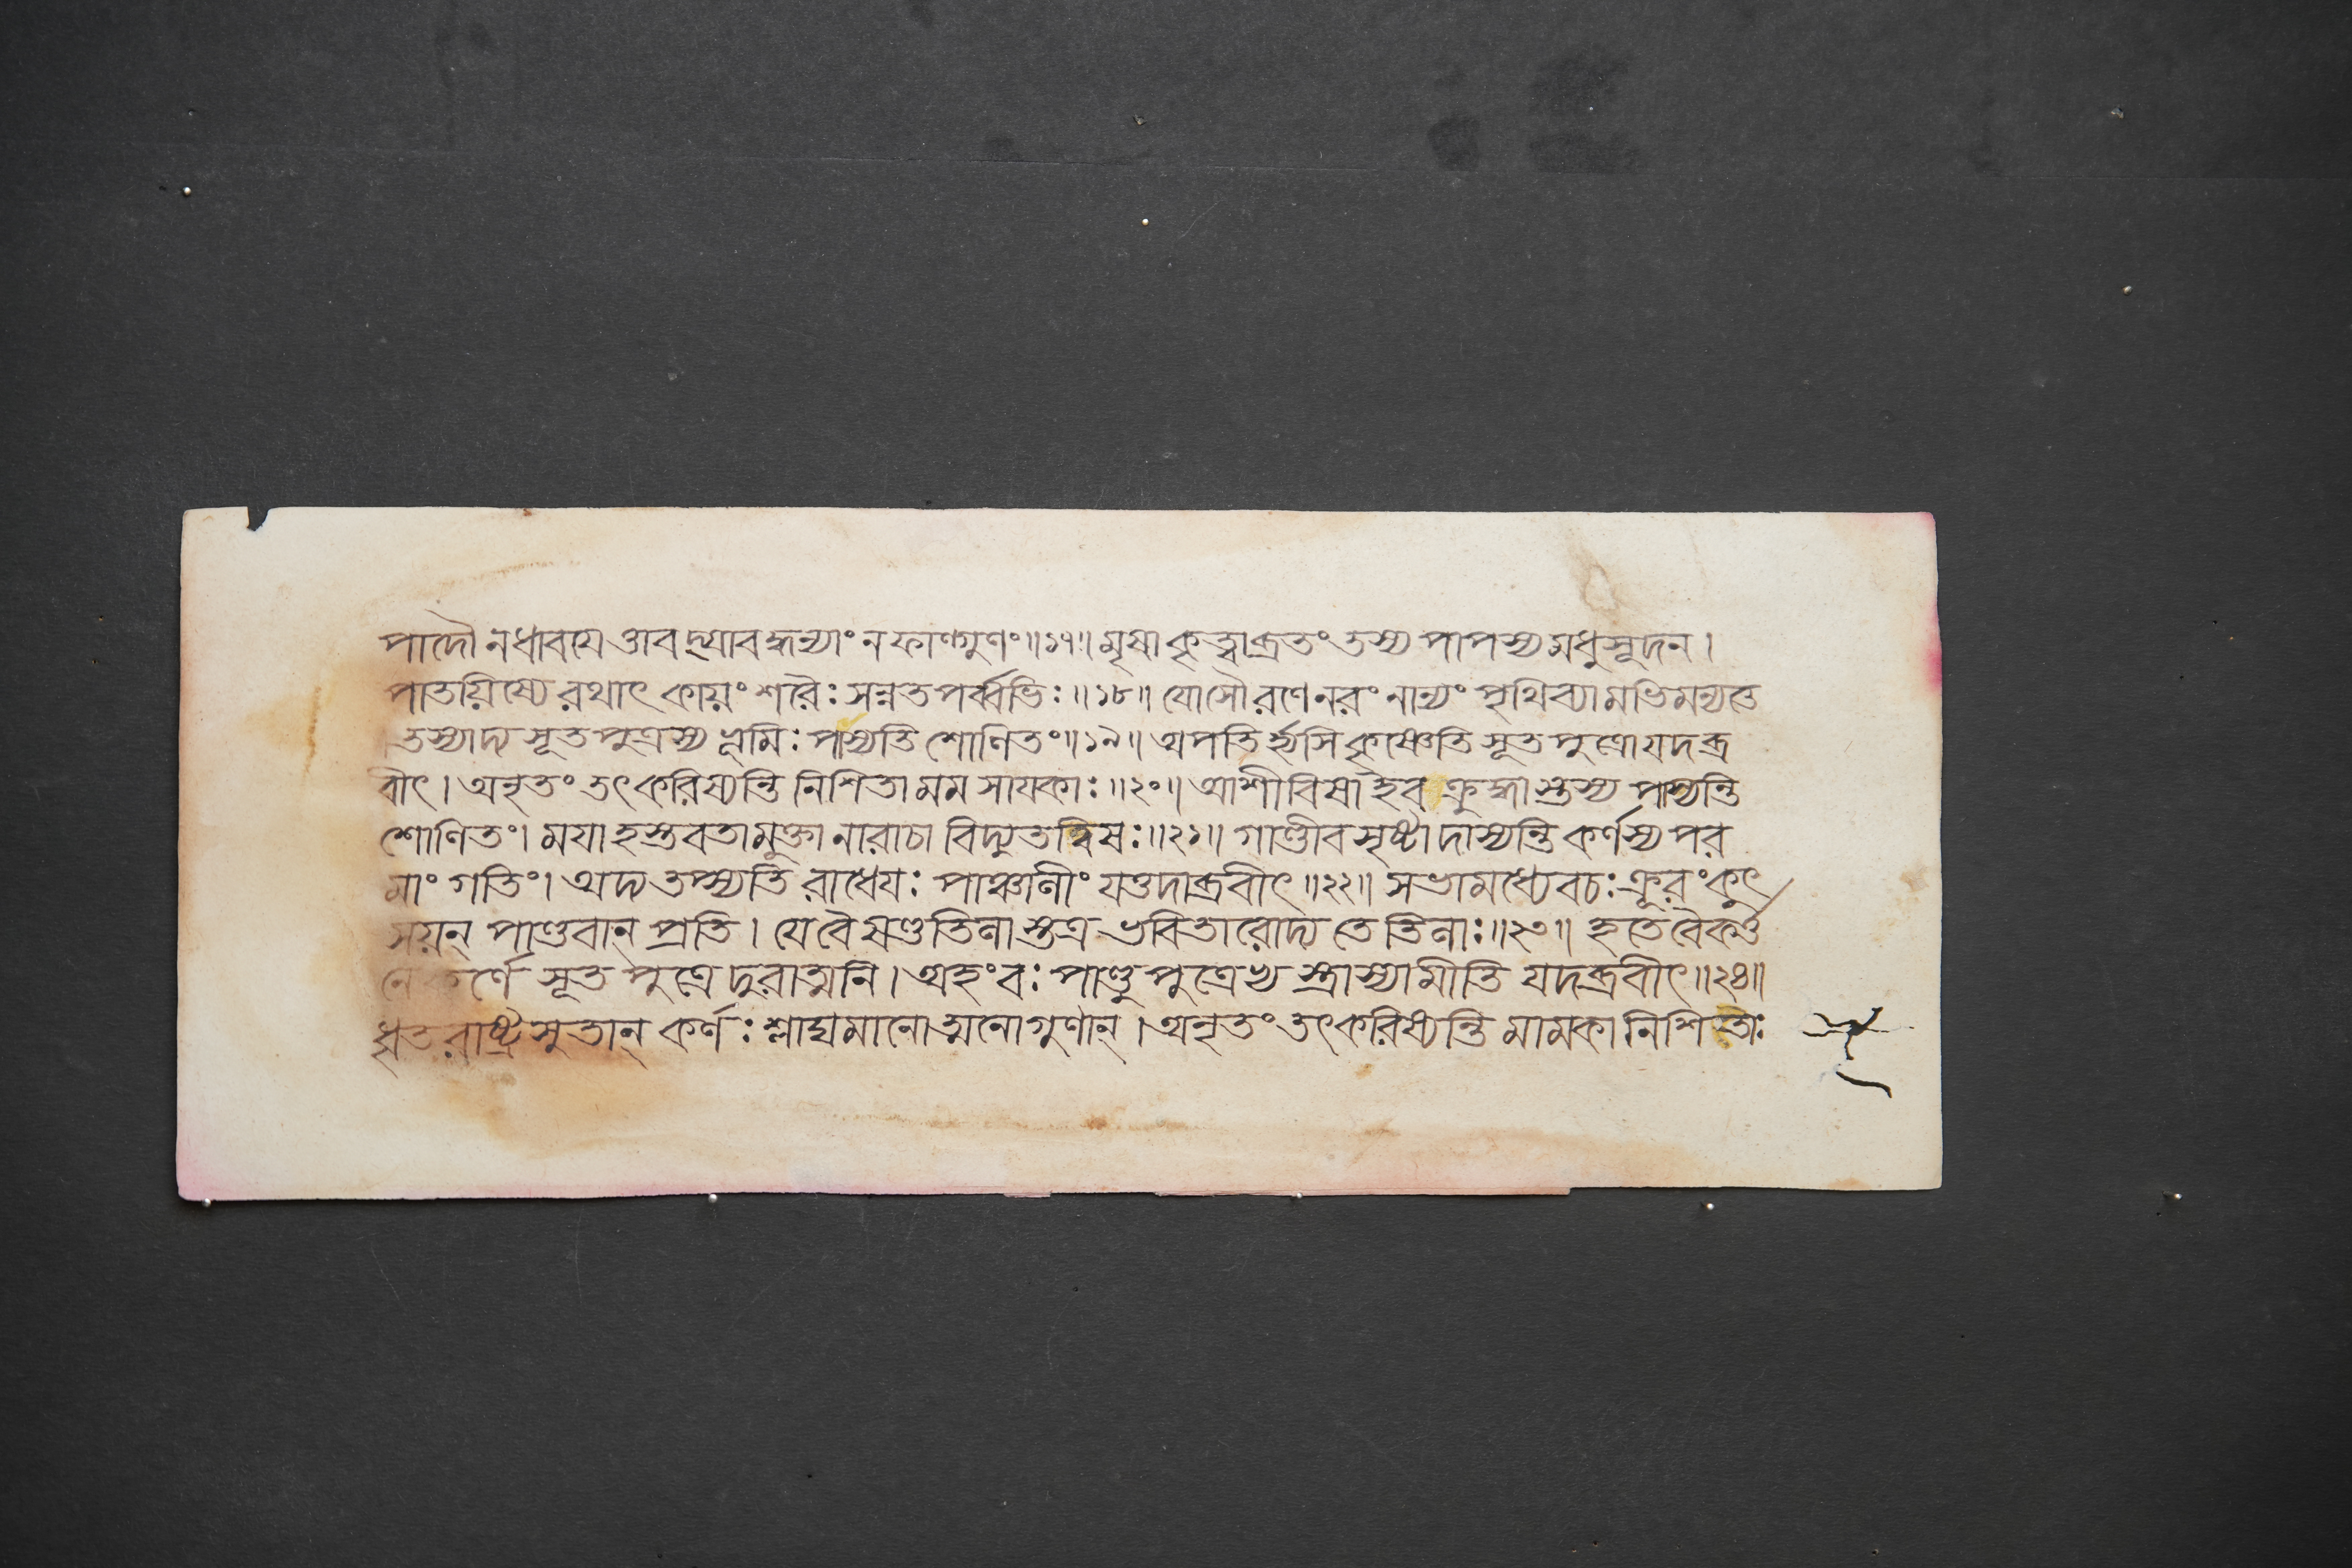 পাদৌ ন ধাবয়ে তাবদ্যাবদ্ধন্যাং ন ফাল্গুণং॥১৭॥ মৃষা কৃত্বা ব্রতং তস্য পাপস্য মধুসূদন।
পাতয়িষ্যে রথাৎ কায়ং শরৈঃ সন্নতপর্ব্বভিঃ॥১৮॥ যোসৌ রণে নরং নান্যং পৃথিব্যামভিমন্যতে
তস্যাদ্য সূতপুত্রস্য ভূমিঃ পাস্যতি শোণিতং॥১৯॥ অপতির্হ্যসি কৃষ্ণেতি সূতপুত্রো যদব্র
বীৎ। অনৃতং তৎ করিষ্যন্তি নিশিতা মম সায়কাঃ॥২০॥ আশীবিষা ইব ক্রুদ্ধাস্তস্য পাস্যন্তি
শোণিতং। ময়া হস্তবতা মুক্তা নারাচা বিদ্যুতত্বিষঃ॥২১॥ গাণ্ডীবসৃষ্টা দাস্যন্তি কর্ণস্য পর
মাং গতিং। অদ্য তপ্স্যতি রাধেয়ঃ পাঞ্চালীং যত্তদাব্রবীৎ॥২২॥ সভামধ্যে বচঃ ক্রূরং কুৎ
সয়ন্ পাণ্ডবান্ প্রতি। যে বৈ ষণ্ডতিলাস্তত্র ভবিতারোদ্য তে তিলাঃ॥২৩॥ হতে বৈকর্ত্ত
নে কর্ণে সূতপুত্রে দুরাত্মনি। অহং বঃ পাণ্ডুপুত্রেভ্যস্ত্রাস্যামীতি যদব্রবীৎ॥২৪॥
ধৃতরাষ্ট্রসুতান্ কর্ণঃ শ্লাঘ্যমানোত্মনো গুণান্। অনৃতং তৎ করিষ্যন্তি মামকা নিশিতাঃ